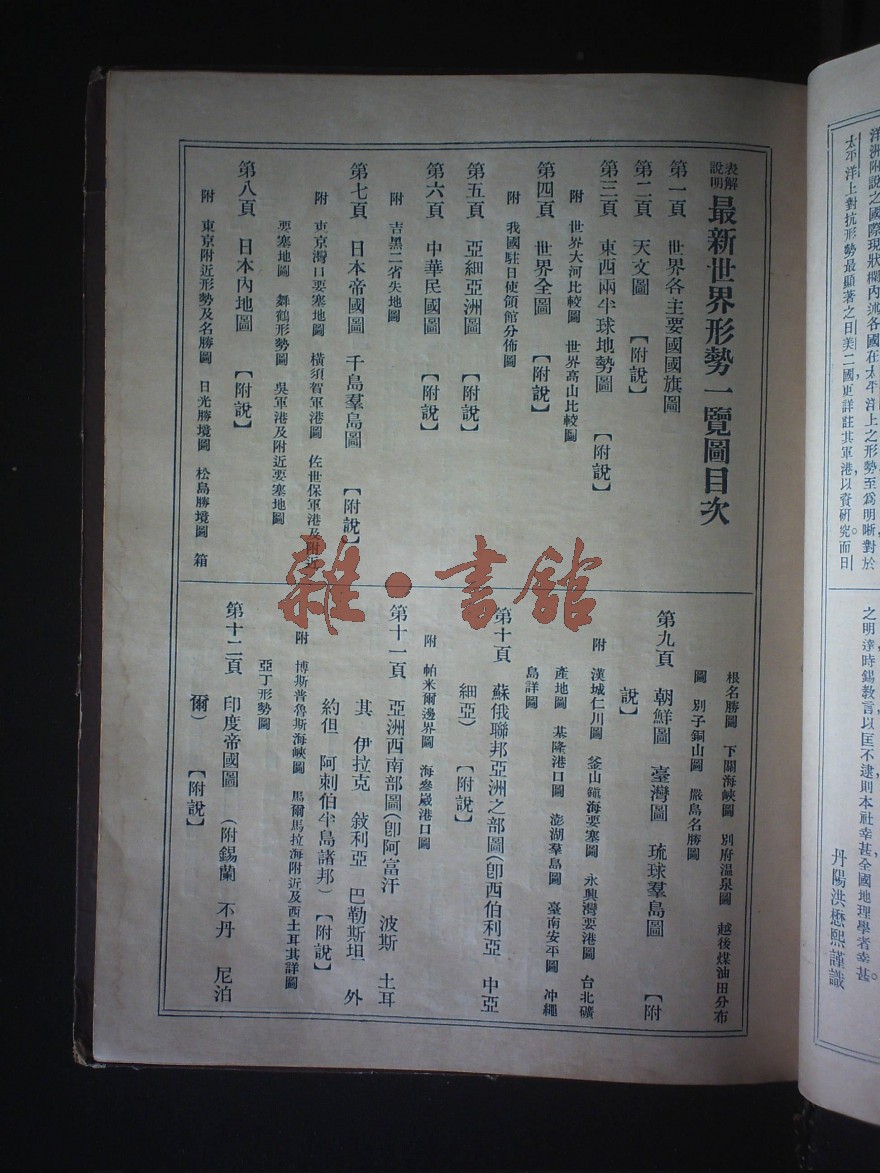 表解說明最新世界形勢一覽圖目次
第一頁　世界各主要國國旗圖
第二頁　天文圖　【附說】
第三頁　東西兩半球地勢圖　【附說】
附　世界大河比較圖　世界高山比較圖
第四頁　世界全圖　【附說】
附　我國駐日使領館分佈圖
第五頁　亞細亞洲圖　【附說】
第六頁　中華民國圖　【附說】
附　吉黑二省失地圖
第七頁　日本帝國圖　千島羣島圖　【附說】
附　東京灣口要塞地圖　橫須賀軍港圖　佐世保軍港及附近
要塞地圖　舞鶴形勢圖　吳軍港及附近要塞地圖
第八頁　日本內地圖　【附說】
附　東京附近形勢及名勝圖　日光勝境圖　松島勝境圖　箱
根名勝圖　下關海峽圖　別府溫泉圖　越後煤油田分布
圖　別子銅山圖　嚴島名勝圖
第九頁　朝鮮圖　臺灣圖　琉球羣島圖　【附
說】
附　漢城仁川圖　釜山鎮海要塞圖　永興灣要港圖　台北礦
產地圖　基隆港口圖　澎湖羣島圖　臺南安平圖　沖繩
島詳圖
第十頁　蘇俄聯邦亞洲之部圖(卽西伯利亞　中亞
細亞)　【附說】
附　帕米爾邊界圖　海參崴港口圖
第十一頁　亞洲西南部圖(卽阿富汗　波斯　土耳
其　伊拉克　敍利亞　巴勒斯坦　外
約但　阿剌伯半島諸邦)　【附說】
附　博斯普魯斯海峽圖　馬爾馬拉海附近及西土耳其詳圖
亞丁形勢圖
第十二頁　印度帝國圖　(附錫蘭　不丹　尼泊
爾)　【附說】
雜·書館
洋洲附說之國際現狀欄內迹各國在太平洋上之形勢至爲明晰對於
太平洋上對抗形勢最顯著之日美二國更詳註其軍港以資研究而日
之明達時錫教言以匡不逮則本社幸甚全國地理學者幸甚。
丹陽洪懋熙謹識